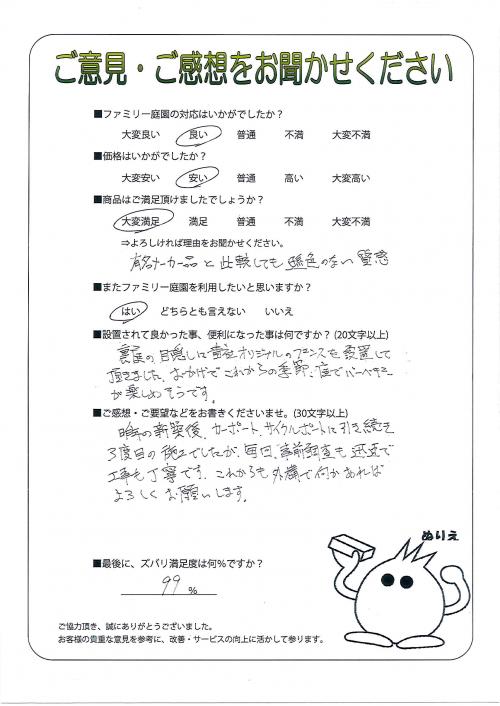 ご意見・ご感想をお聞かせください
■ファミリー庭園の対応はいかがでしたか？
大変良い 良い 普通 不満 大変不満
■価格はいかがでしたか？
大変安い 安い 普通 高い 大変高い
■商品はご満足頂けましたでしょうか？
大変満足 満足 普通 不満 大変不満
⇒よろしければ理由をお聞かせください。
有名メーカー品と比較しても遜色のない質感
■またファミリー庭園を利用したいと思いますか？
はい どちらとも言えない いいえ
■設置されて良かった事、便利になった事は何ですか？(20文字以上)
裏庭の目隠しに貴社オリジナルのフェンスを設置して
頂きました。おかげでこれからの季節、庭でバーベキュー
が楽しめそうです。
■ご感想・ご要望などをお書きくださいませ。(30文字以上)
昨年の新築後、カーポート、サイクルポートに引き続き
3度目の施工でしたが、毎回、事前調査も迅速で
工事も丁寧です。これからも外構で何かあれば
よろしくお願いします。
ぬりえ
■最後に、ズバリ満足度は何％ですか？
99 ％
ご協力頂き、誠にありがとうございました。
お客様の貴重な意見を参考に、改善・サービスの向上に活かして参ります。